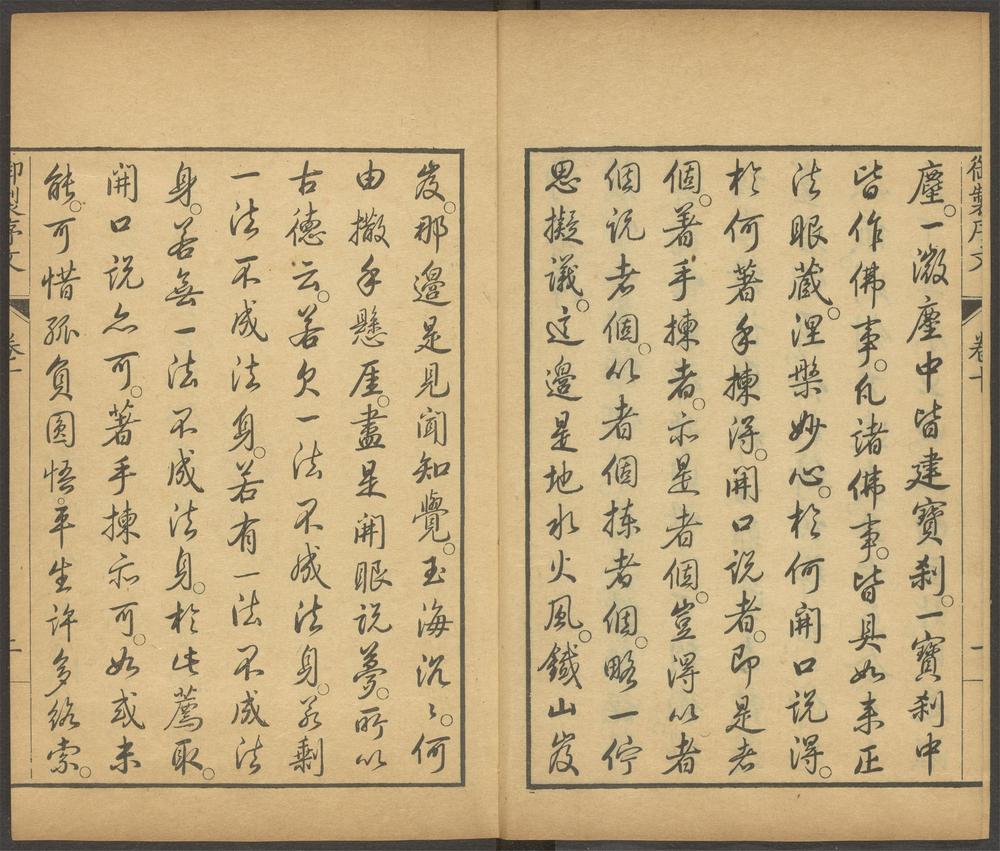 御製序文 卷十 一
塵。一微塵中皆建寶剎。一寶剎中
皆作佛事。凡諸佛事。皆具如来正
法眼蔵。涅槃妙心。於何開口説得。
於何著手揀得。開口説者。即是者
個。著手揀者。亦是者個。豈得以者
個説者個。以者個揀者個。略一佇
思擬議。这邉是地水火風。鐵山岌
岌。那邉是見聞知覺。玉海沉〻。何
由撒手懸厓。盡是開眼説夢。所以
古德云。若欠一法不成法身。若剩
一法不成法身。若有一法不成法
身。若無一法不成法身。於此薦取。
開口説亦可。著手揀亦可。如或未
能。可惜孤負圓悟。平生許多絡索。
御製序文 卷十 二